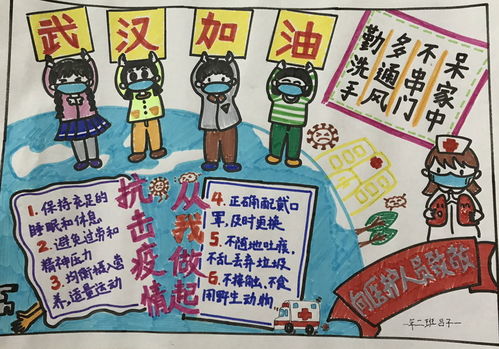 武汉加油
呆家中
不串门
多通风
勤洗手
1. 保持充足的
睡眠和休息
2. 避免过劳和
精神压力
3. 均衡膳食营
养,适量运动
抗击疫情
从我做起
4. 正确配戴口
罩,及时更换
5. 不随地吐痰,
不乱丢弃垃圾
6. 不接触、不食
用野生动物
向医护人员致敬
一年二班 吕子一